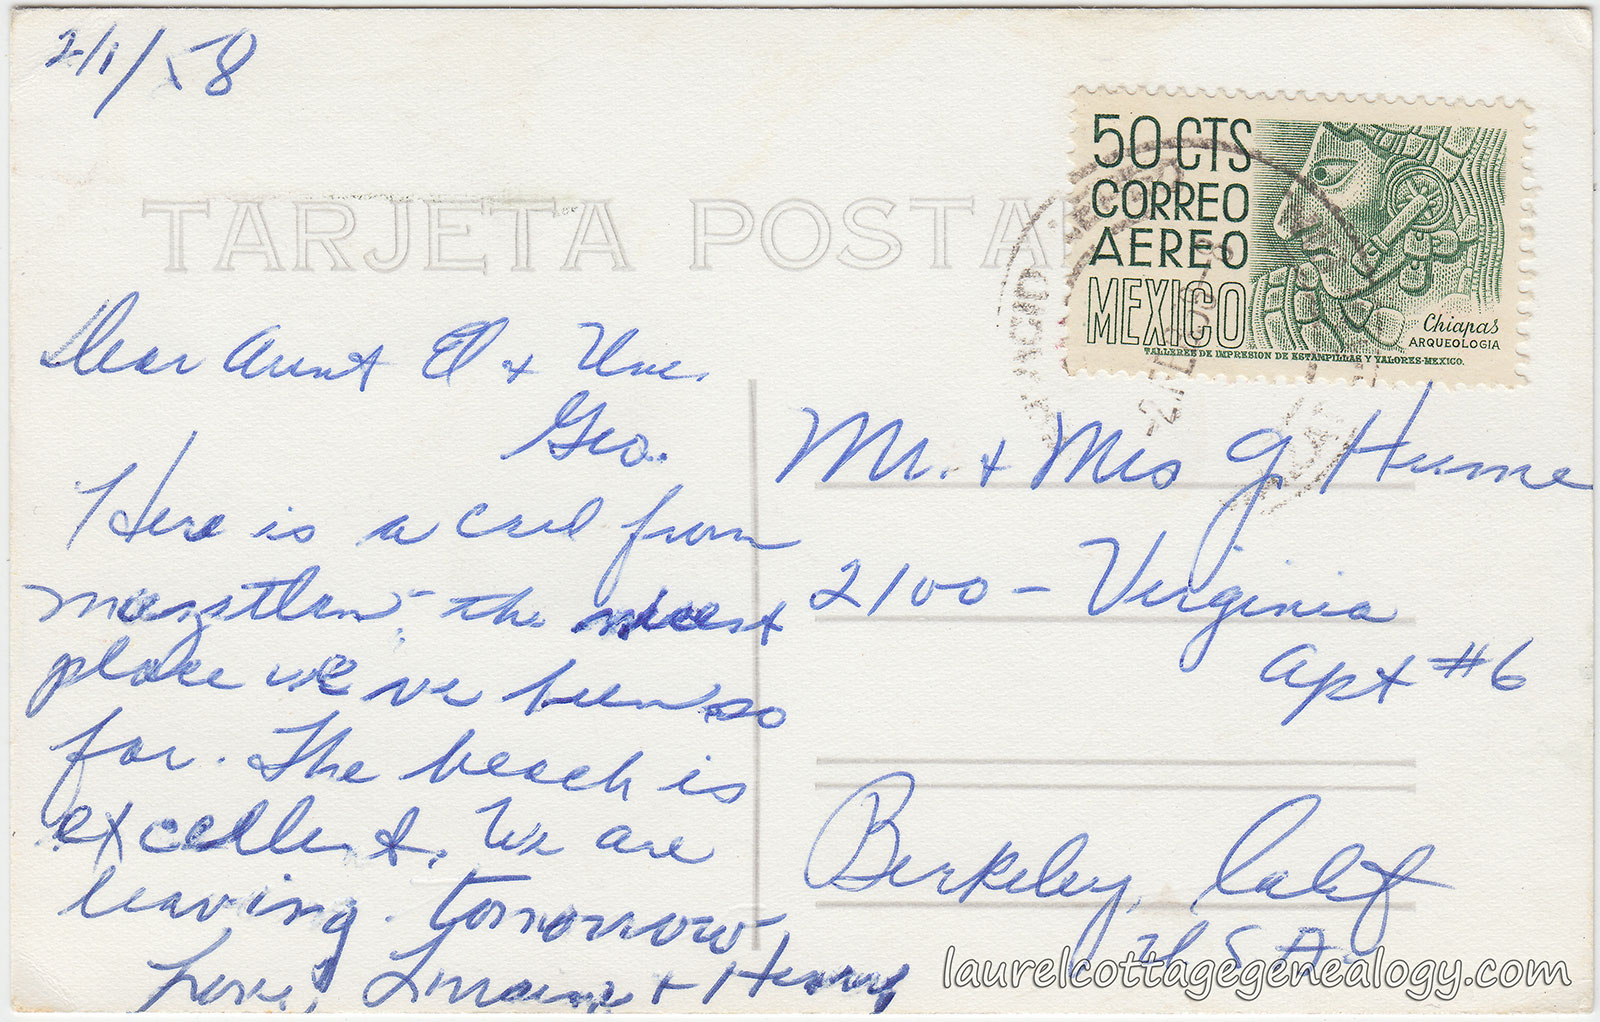 2/1/58
TARJETA POSTAL
50 CTS
CORREO
AEREO
MEXICO
Chiapas
ARQUEOLOGIA
TALLERES DE IMPRESION DE ESTAMPILLAS Y VALORES-MEXICO.
Dear Aunt El + Unc.
Geo.
Here is a card from
Mazatlan, the nicest
place we've been so
far. The beach is
excellent. We are
leaving tomorrow
Love, Lorraine + Henry
Mr. + Mrs G. Hume
2100 - Virginia
Apt #6
Berkeley, Calif
USA.
laurelcottagegenealogy.com